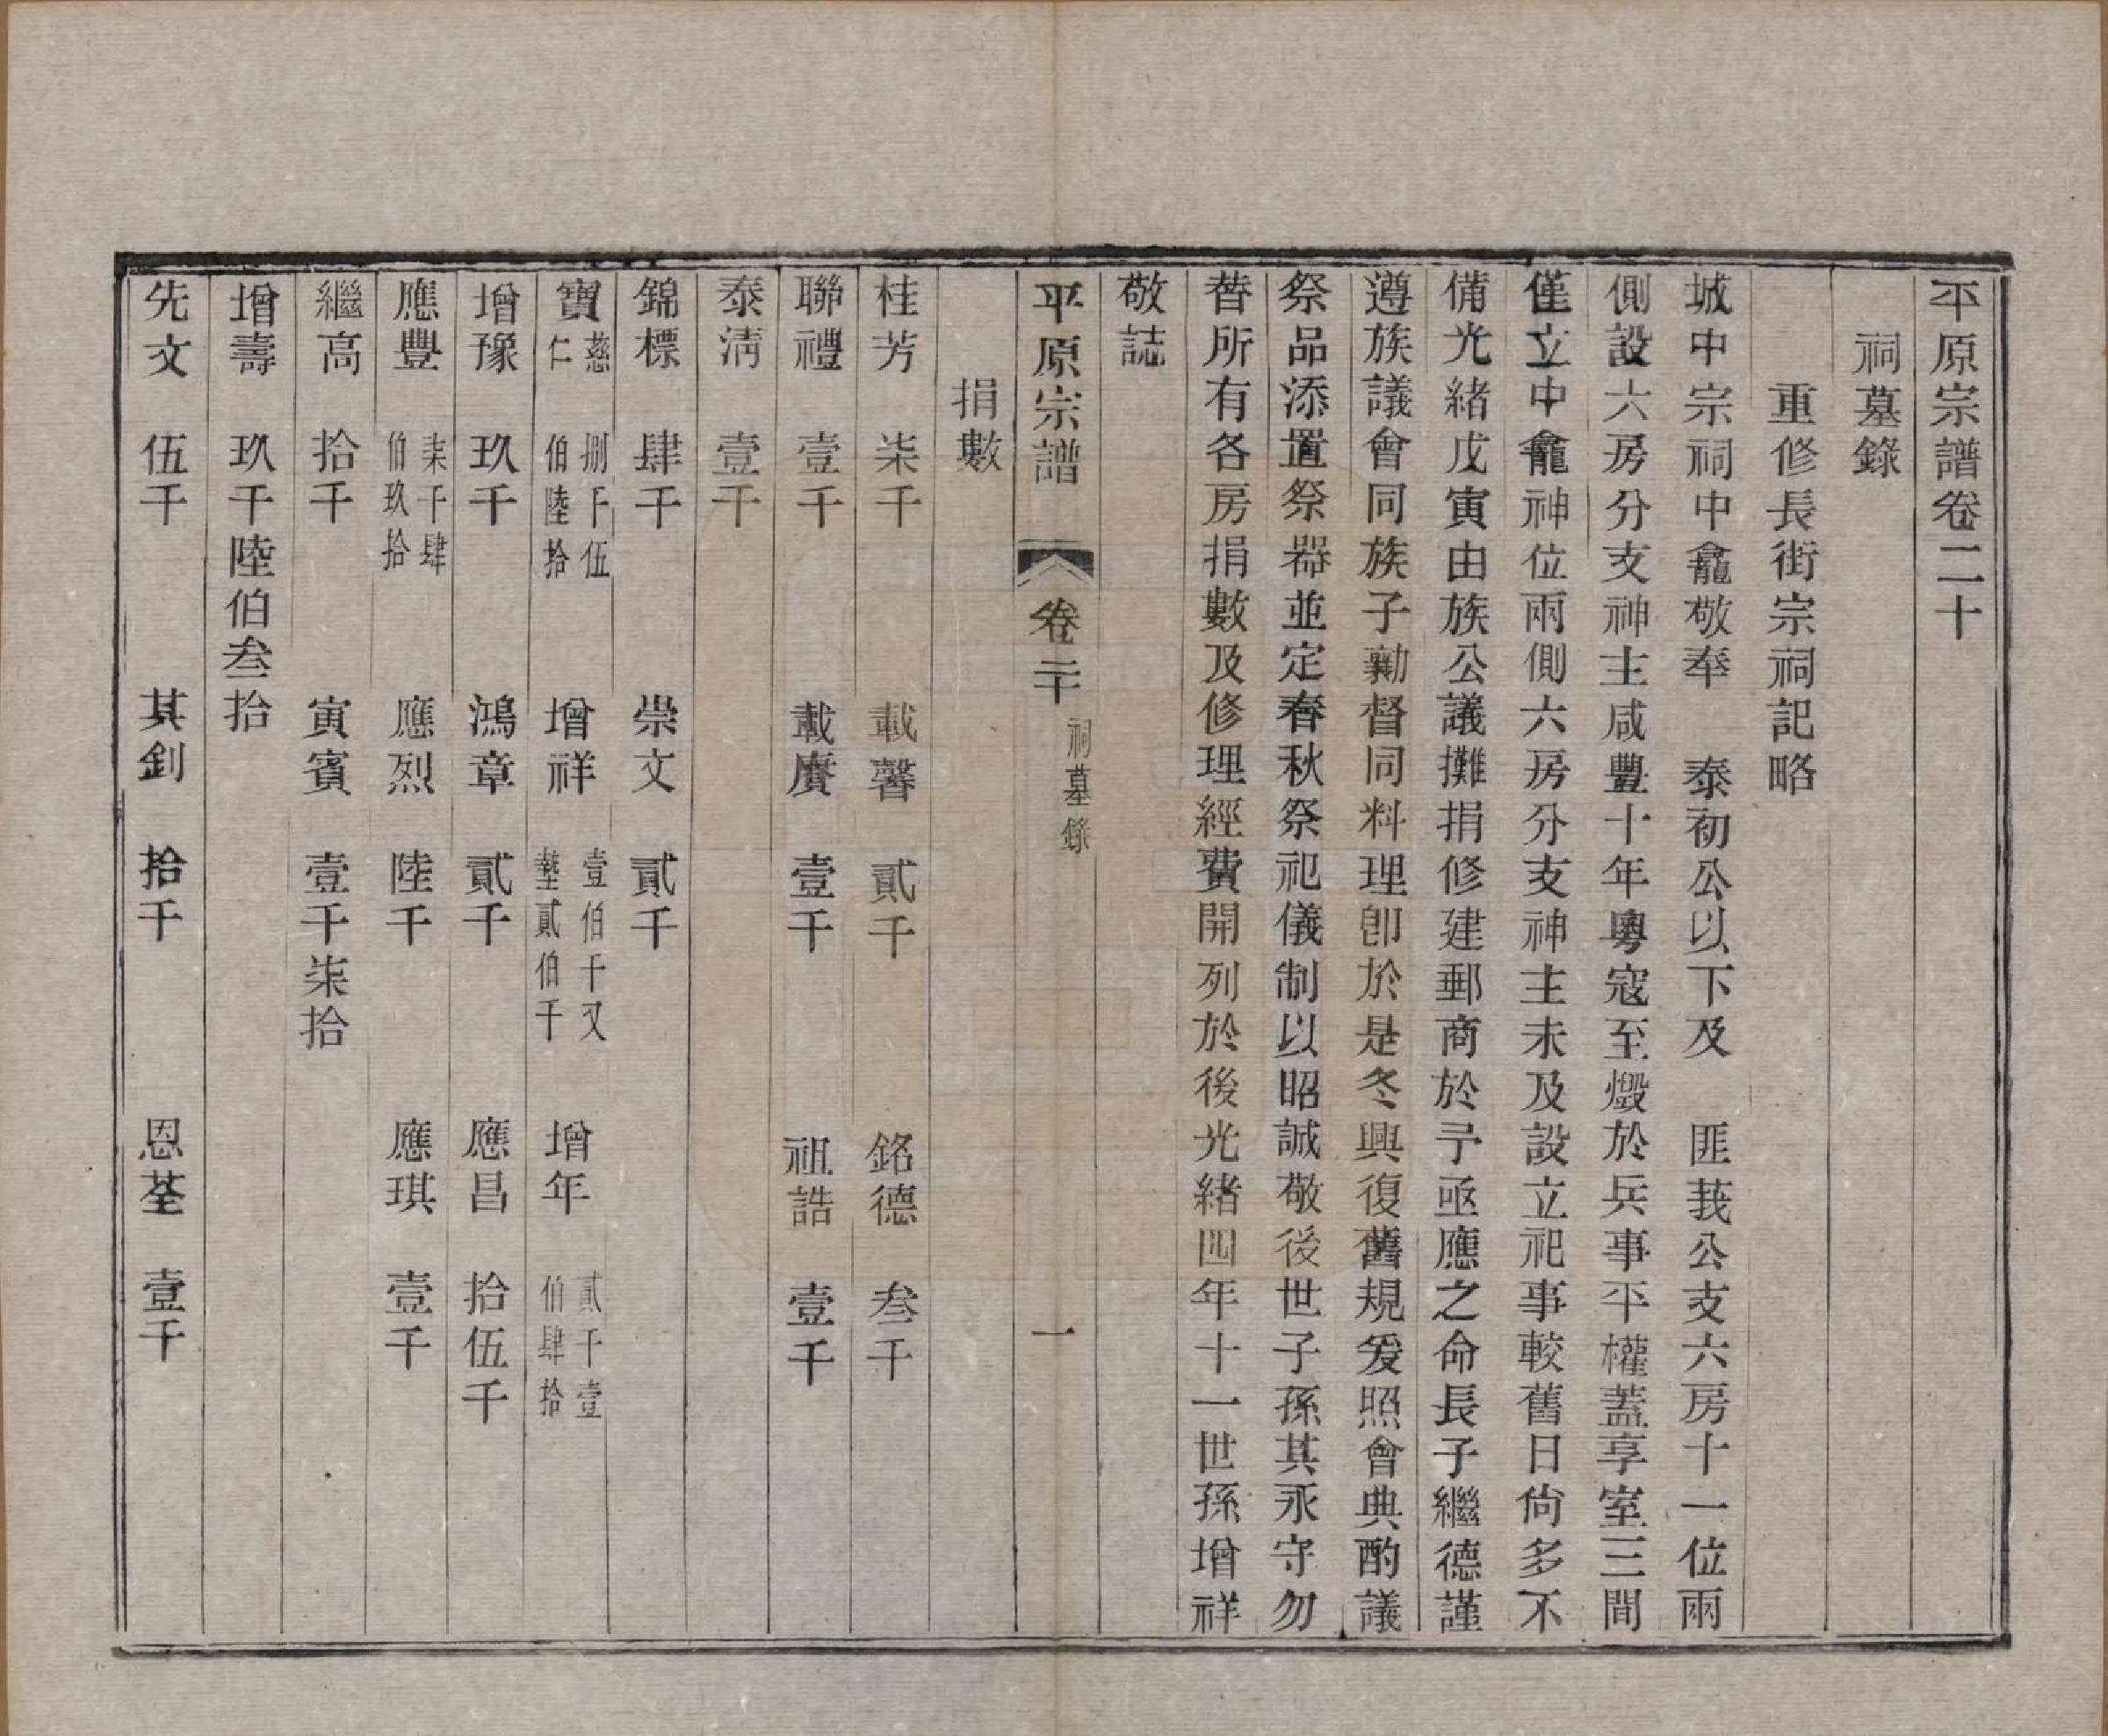 平原宗譜卷二十
祠墓錄
重修長街宗祠記略
城中宗祠中龕敬奉　泰初公以下及　匪莪公支六房十一位兩
側設六房分支神主咸豐十年粵寇至燬於兵事平權蓋享室三間
僅立中龕神位兩側六房分支神主未及設立祀事較舊日尙多不
備光緒戊寅由族公議攤捐修建郵商於予亟應之命長子繼德謹
遵族議會同族子勷督同料理卽於是冬興復舊規爰照會典酌議
祭品添置祭器並定春秋祭祀儀制以昭誠敬後世子孫其永守勿
替所有各房捐數及修理經費開列於後光緒四年十一世孫增祥
敬誌
平原宗譜　卷二十　祠墓錄　一
捐數
桂芳　柒千　載馨　貳千　銘德　叁千
聯禮　壹千　載賡　壹千　祖誥　壹千
泰淸　壹千
錦標　肆千　崇文　貳千
寶慈仁　捌千伍伯陸拾　增祥　壹伯千又墊貳伯千　增年　貳千壹伯肆拾
增豫　玖千　鴻章　貳千　應昌　拾伍千
應豐　柒千肆伯玖拾　應烈　陸千　應琪　壹千
繼高　拾千　寅賓　壹千柒拾
增壽　玖千陸伯叁拾
先文　伍千　其釗　拾千　恩荃　壹千